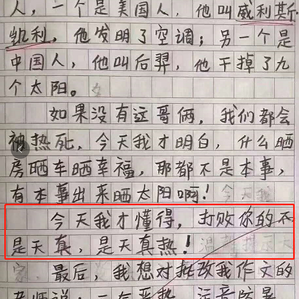 人，一个是美国人，他叫威利斯
凯利，他发明了空调；另一个是
中国人，他叫后羿，他干掉了九
个太阳。
如果没有这哥俩，我们都会
被热死，今天我才明白，什么晒
房晒车晒幸福，那都不是本事，
有本事出来晒太阳啊！
今天我才懂得，打败你的不
是天真，是天真热！
最后，我想对批改我作文的